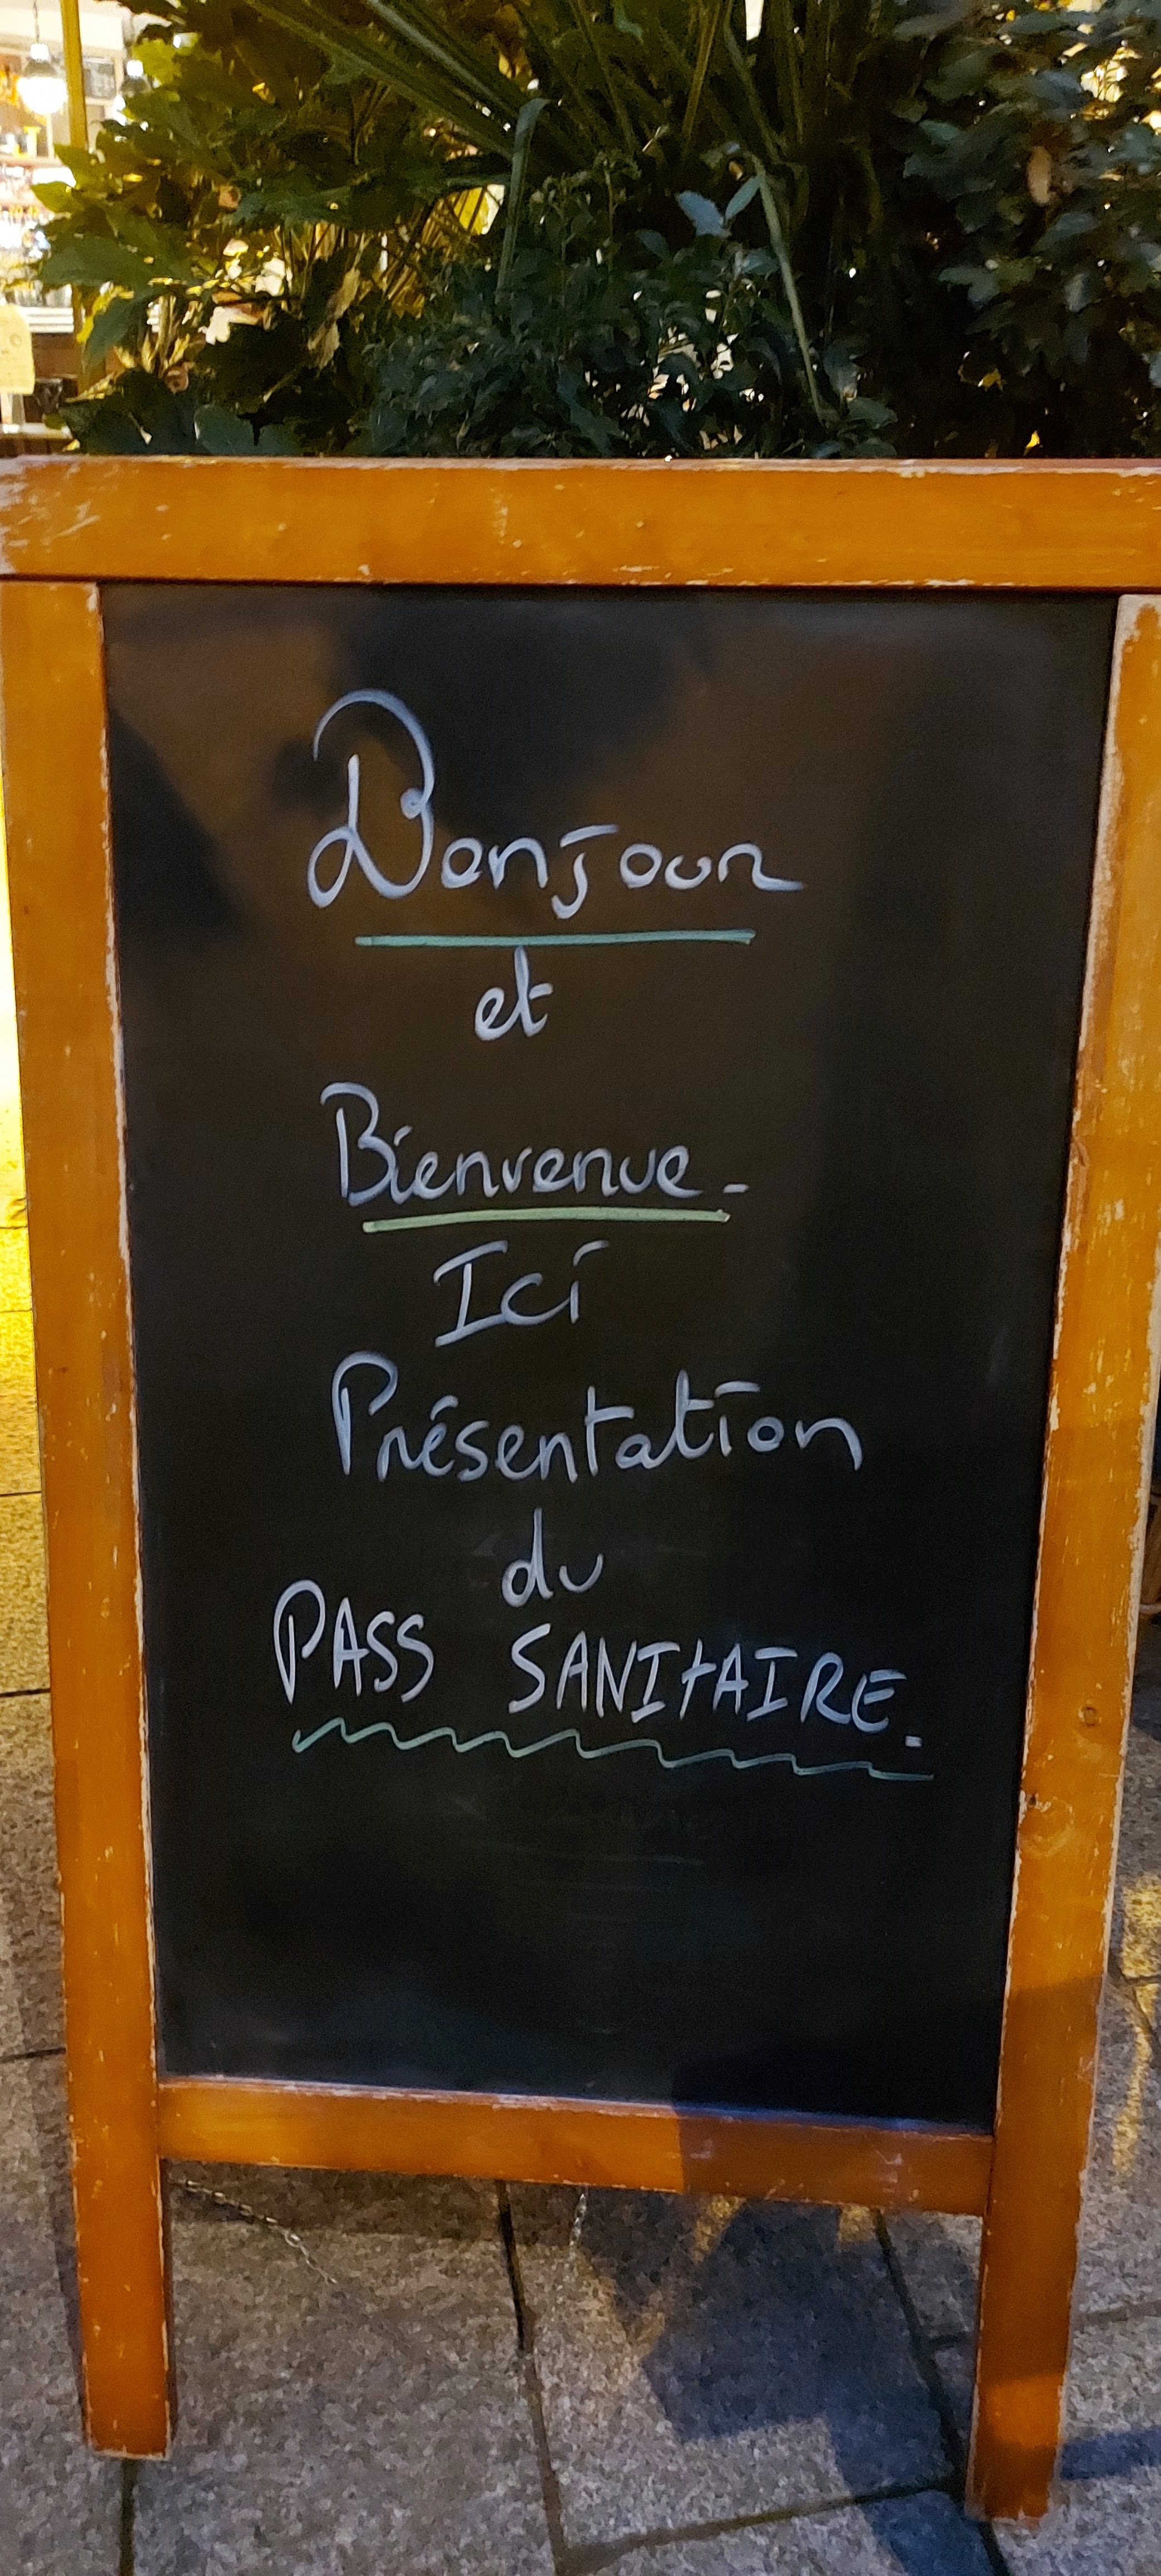 Bonjour
et
Bienvenue.
Ici
Présentation
du
PASS SANItAIRE.